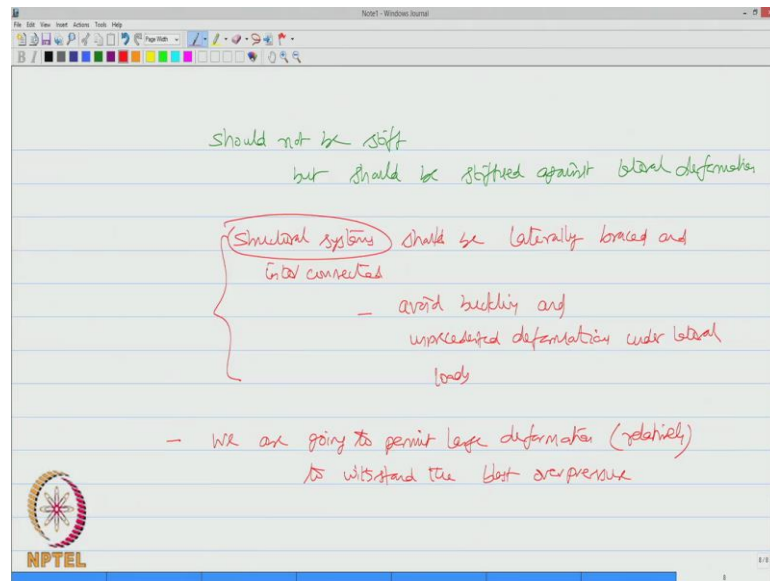 Note1 - Windows Journal
File Edit View Insert Actions Tools Help
Page Width
B I
should not be stiff
but should be stiffned against lateral deformation
Structural systems should be laterally braced and
inter connected
- avoid buckling and
unprecedented deformation under lateral
loads
- we are going to permit large deformation (relatively)
to withstand the blast overpressure
NPTEL
8/8
8